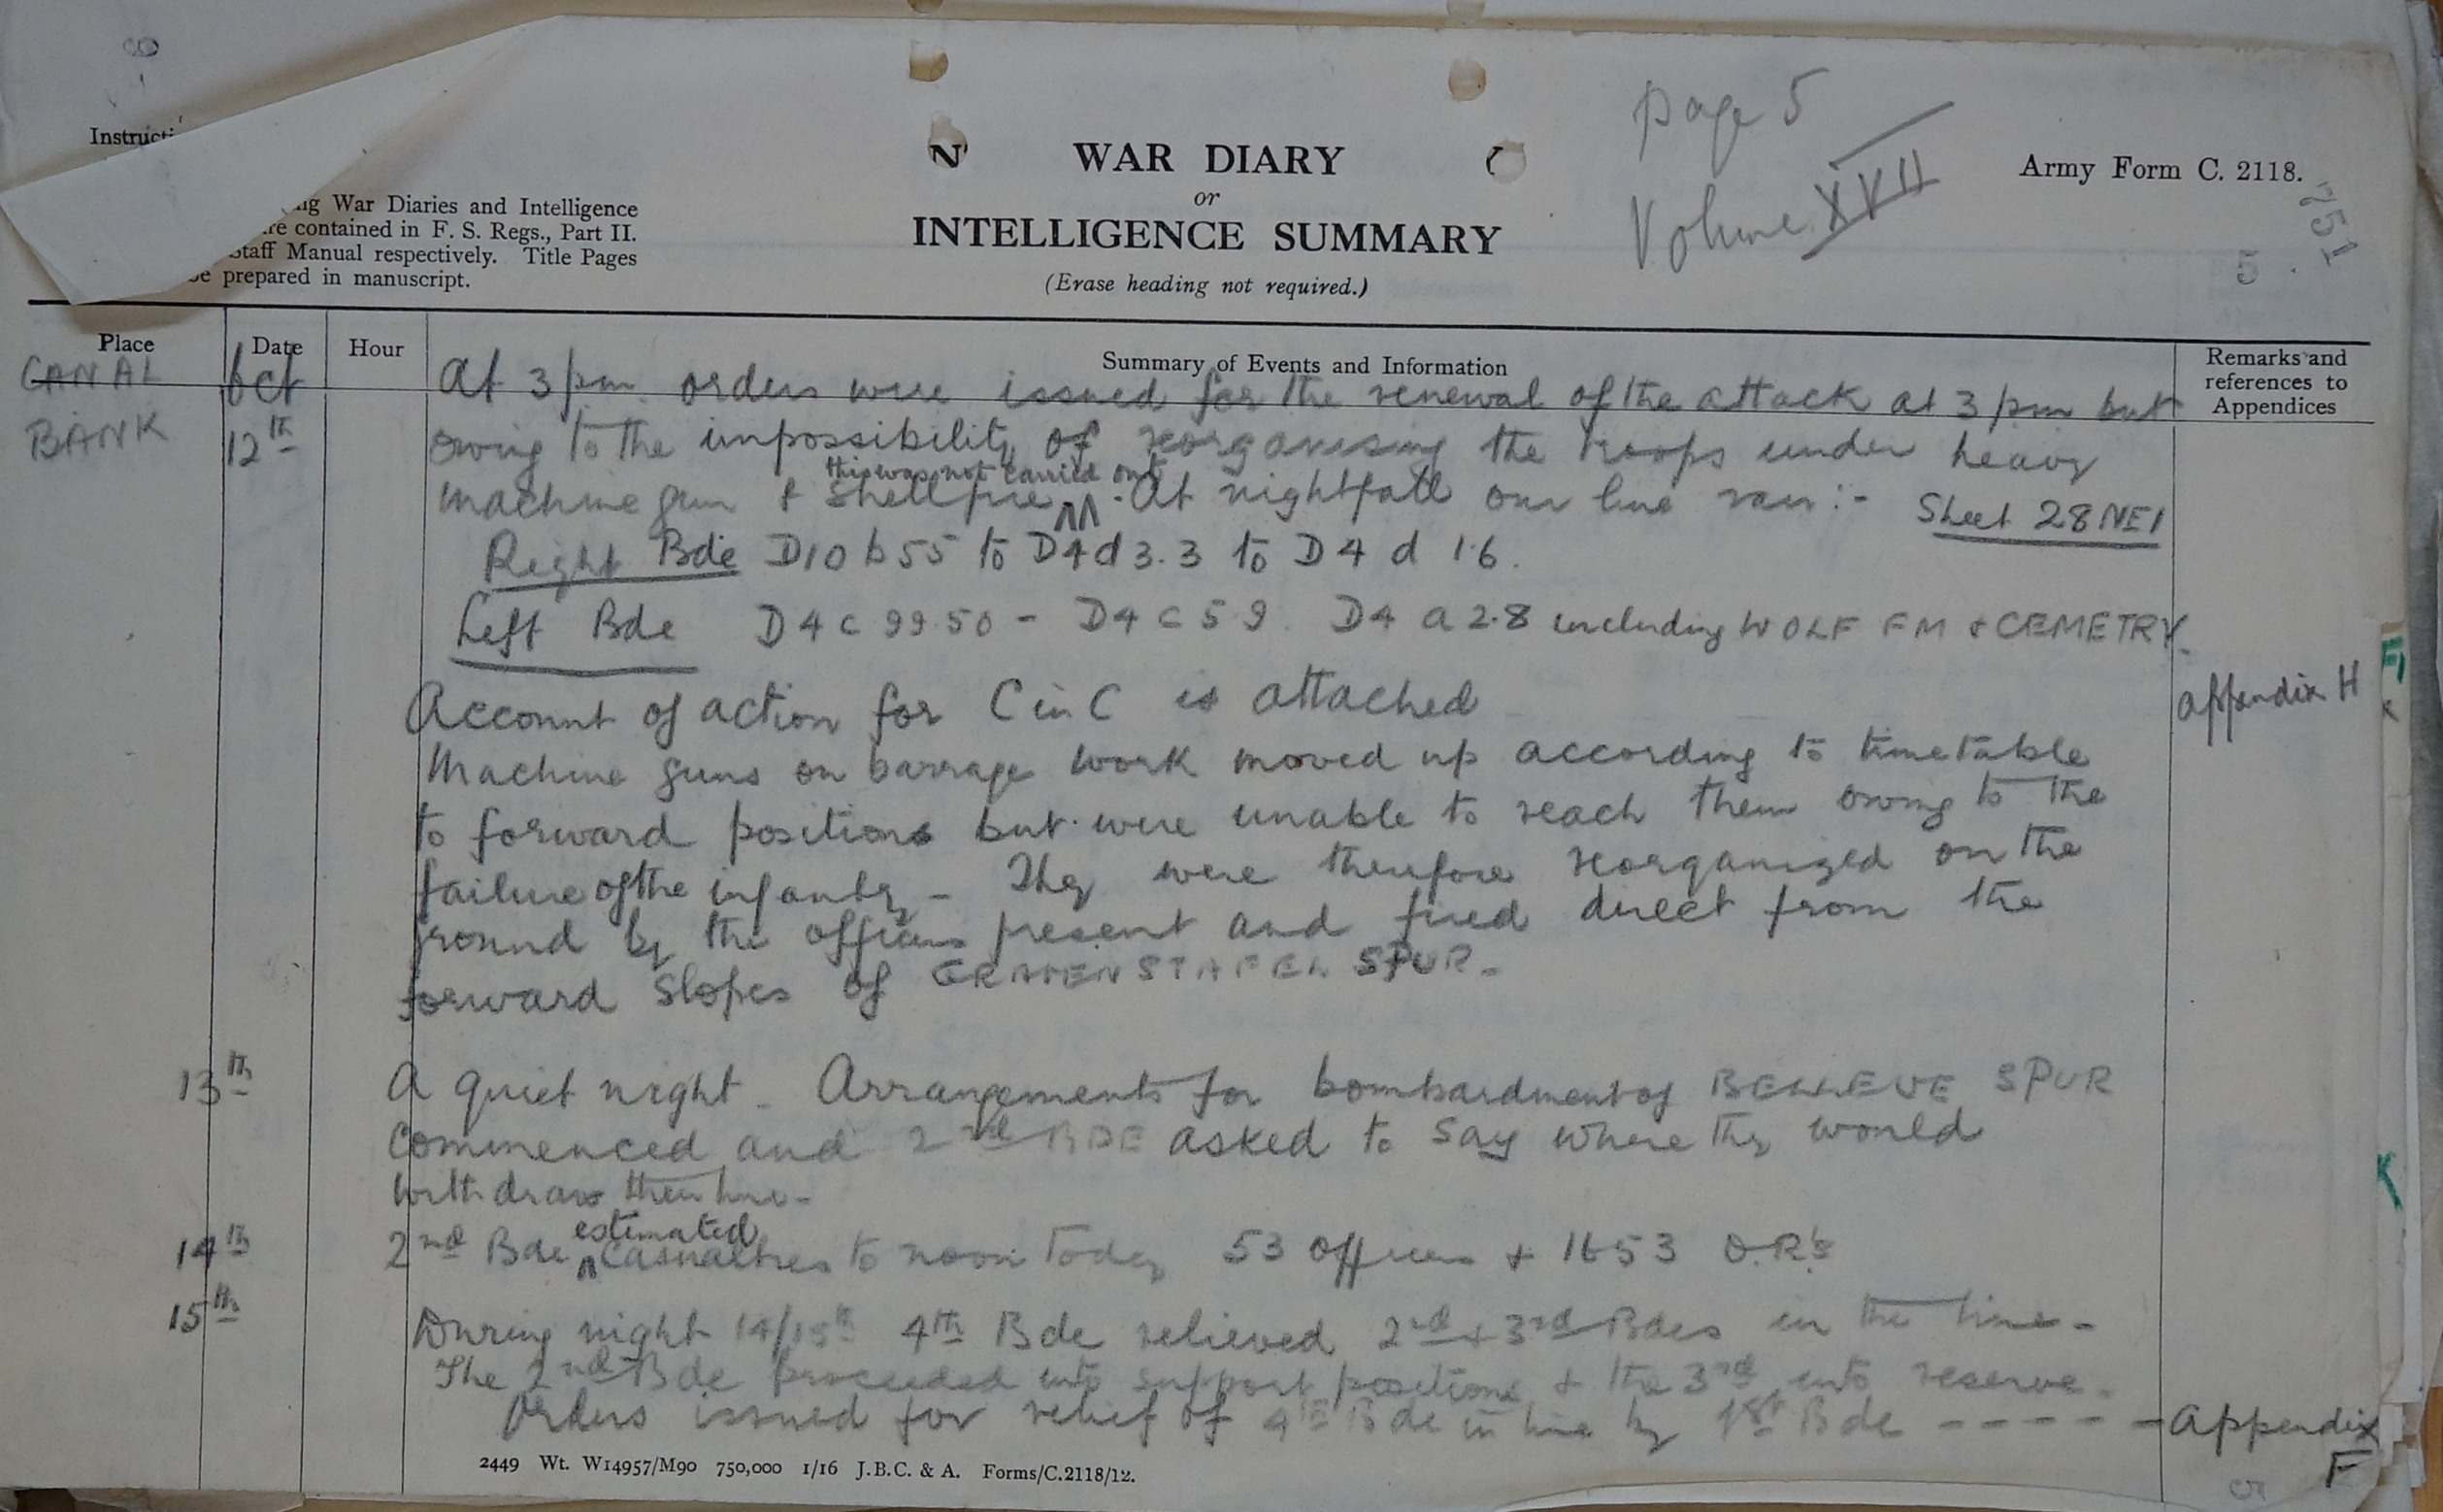 Instructi
ng War Diaries and Intelligence
re contained in F. S. Regs., Part II.
Staff Manual respectively. Title Pages
be prepared in manuscript.
WAR DIARY
or
INTELLIGENCE SUMMARY
(Erase heading not required.)
page 5
Volume XVII
Army Form C. 2118.
751
5
Place
Date
Hour
Summary of Events and Information
Remarks and
references to
Appendices
CANAL
BANK
Oct
12th
At 3 pm orders were issued for the renewal of the attack at 3 pm but
owing to the impossibility of reorganising the troops under heavy
this was not carried out
machine gun & shellfire. At nightfall our line ran :- Sheet 28 NE1
Right Bde D10 b55 to D4d 3.3 to D4 d 1.6.
Left Bde D4c 99.50 - D4c 5 9. D4 a 2.8 including WOLF FM & CEMETRY.
Account of action for C in C is attached
appendix H
Machine guns on barrage work moved up according to timetable
to forward positions but were unable to reach them owing to the
failure of the infantry - They were therefore reorganized on the
ground by the officers present and fired direct from the
forward slopes of GRAVENSTAFEL SPUR.
13th
A quiet night. Arrangements for bombardment of BELLEVUE SPUR
commenced and 2nd BDE asked to say where they would
withdraw their line.
14th
estimated
2nd Bde casualties to noon today 53 officers + 1653 O.R's
15th
During night 14/15th 4th Bde relieved 2nd & 3rd Bdes in the line.
The 2nd Bde proceeded into support positions & the 3rd into reserve.
Orders issued for relief of 4th Bde in line by 1st Bde - - - - - appendix
F
2449 Wt. W14957/M90 750,000 1/16 J.B.C. & A. Forms/C.2118/12.